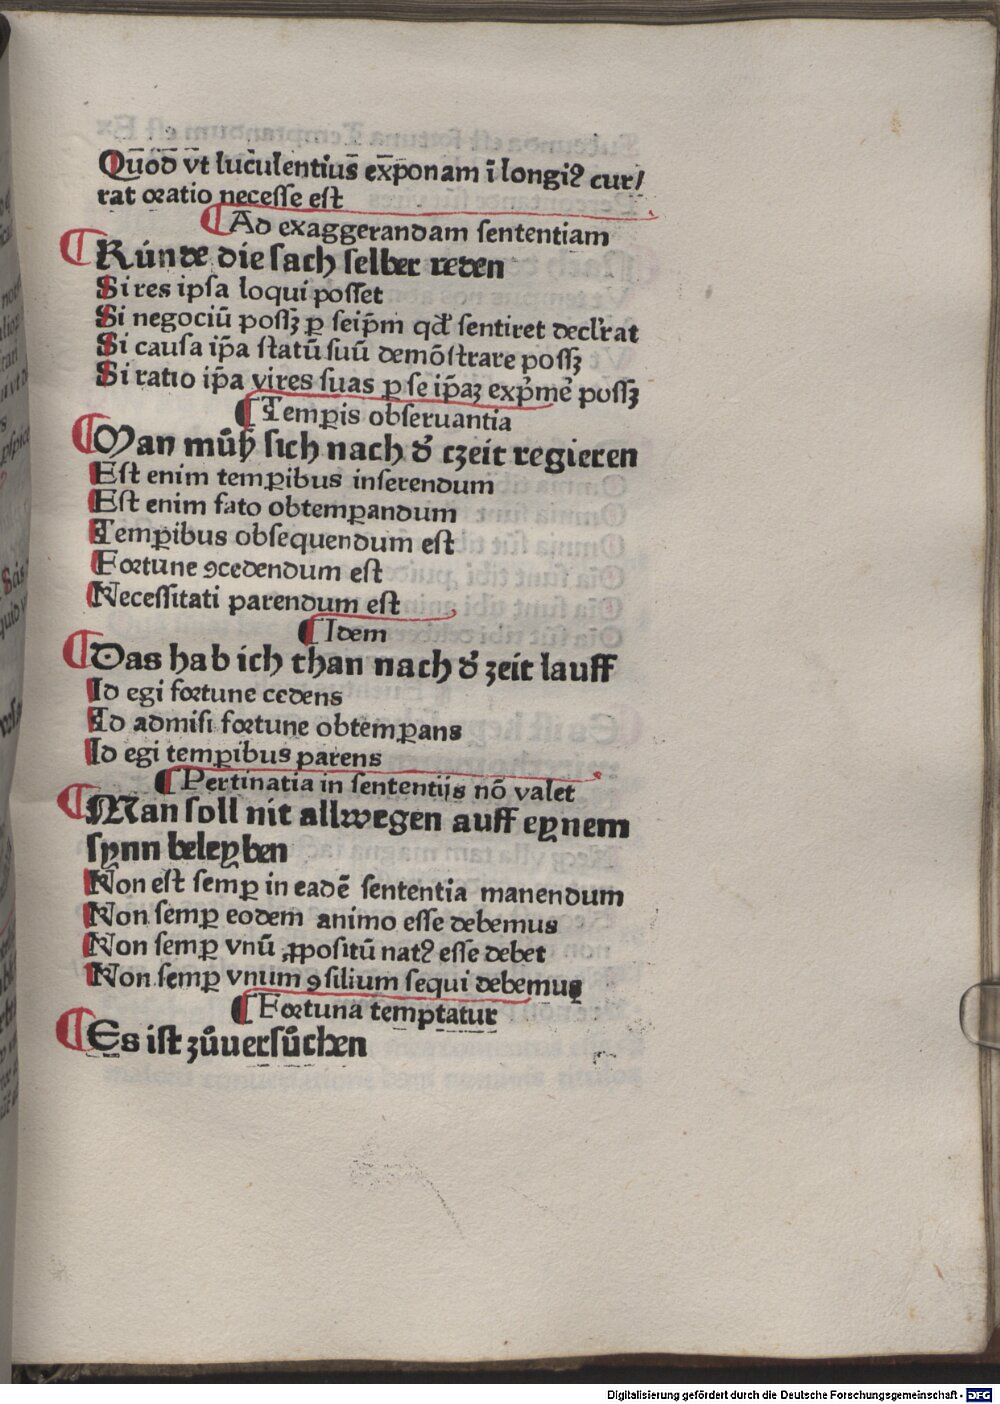 Quod vt luculentius exponam i longi⁹ cur/
rat oratio necesse est
¶Ad exaggerandam sententiam
¶Kúnde die sach selber reden
Si res ipsa loqui posset
Si negociū possꝫ ꝑ seip̄m qd̛ sentiret decl̓rat
Si causa ip̄a statū suū demōstrare possꝫ
Si ratio ip̄a vires suas ꝑ se ip̄aꝫ exp̓me̓ possꝫ
¶Temꝑis obseruantia
¶Man mům̃ sich nach d̓ czeit regieren
Est enim temꝑibus inserendum
Est enim fato obtemꝑandum
Temꝑibus obsequendum est
Fortune ꝯcedendum est
Necessitati parendum est
¶Idem
¶Das hab ich than nach d̓ zeit lauff
Id egi fortune cedens
Id admisi fortune obtemꝑans
Id egi temꝑibus parens
¶Pertinatia in sententijs nō valet
¶Man soll nit allwegen auff eynem
synn beleyben
Non est semꝑ in eadē sententia manendum
Non semꝑ eodem animo esse debemus
Non semꝑ vnū ꝓpositū nat⁹ esse debet
Non semꝑ vnum ꝯsilium sequi debemus
¶Fortuna temptatur
¶Es ist zůuersůchen
Digitalisierung gefördert durch die Deutsche Forschungsgemeinschaft - DFG